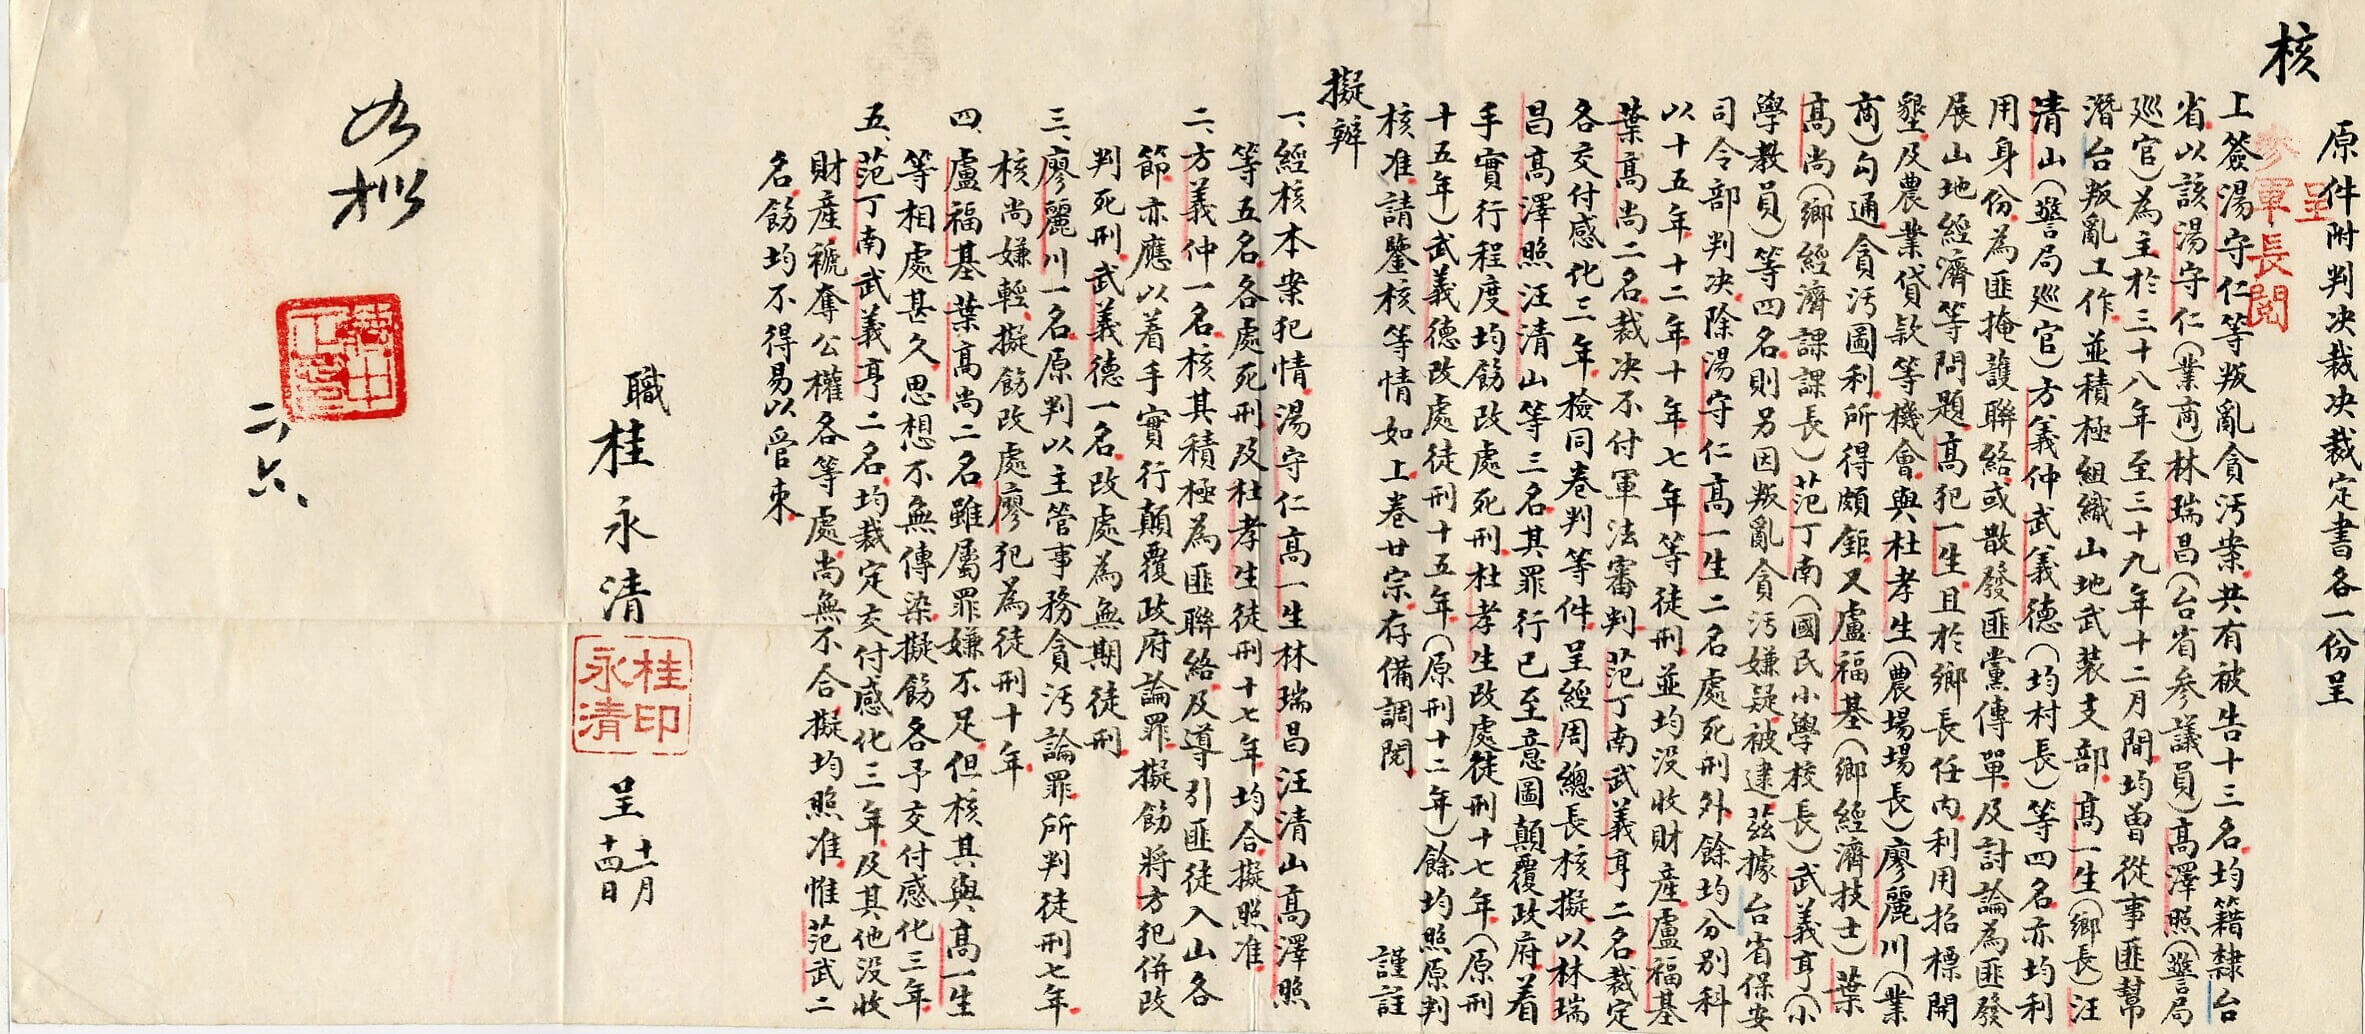 核
原件附判決裁決裁定書各一份呈
呈
參軍長閱
上簽湯守仁等叛亂貪污案共有被告十三名均籍隸台
省以該湯守仁(業商)林瑞昌(台省參議員)高澤照(警局
巡官)為主於三十八年至三十九年十二月間均曾從事匪幫
潛台叛亂工作並積極組織山地武裝支部高一生(鄉長)汪
清山(警局巡官)方義仲武義德(均村長)等四名亦均利
用身份為匪掩護聯絡或散發匪黨傳單及討論為匪發
展山地經濟等問題高犯一生且於鄉長任內利用招標開
墾及農業貸款等機會與杜孝生(農場場長)廖麗川(業
商)勾通貪污圖利所得頗鉅又盧福基(鄉經濟技士)葉
高尚(鄉經濟課課長)范丁南(國民小學校長)武義亨(小
學教員)等四名則另因叛亂貪污嫌疑被逮茲據台省保安
司令部判決除湯守仁高一生二名處死刑外餘均分別科
以十五年十二年十年七年等徒刑並均沒收財產盧福基
葉高尚二名裁決不付軍法審判范丁南武義亨二名裁定
各交付感化三年檢同卷判等件呈經周總長核擬以林瑞
昌高澤照汪清山等三名其罪行已至意圖顛覆政府着
手實行程度均飭改處死刑杜孝生改處徒刑十七年(原刑
十五年)武義德改處徒刑十五年(原刑十二年)餘均照原判
核准請鑒核等情如上卷廿宗存備調閱
謹註
擬辦
一、經核本案犯情湯守仁高一生林瑞昌汪清山高澤照
等五名各處死刑及杜孝生徒刑十七年均合擬照准
二、方義仲一名核其積極為匪聯絡及導引匪徒入山各
節亦應以着手實行顛覆政府論罪擬飭將方犯併改
判死刑武義德一名改處為無期徒刑
三、廖麗川一名原判以主管事務貪污論罪所判徒刑七年
核尚嫌輕擬飭改處廖犯為徒刑十年
四、盧福基葉高尚二名雖屬罪嫌不足但核其與高一生
等相處甚久思想不無傳染擬飭各予交付感化三年
五、范丁南武義亨二名均裁定交付感化三年及其他沒收
財產褫奪公權各等處尚無不合擬均照准惟范武二
名飭均不得易以管束
職桂永清
桂永清印
呈
十一月
十四日
如擬
二、六、